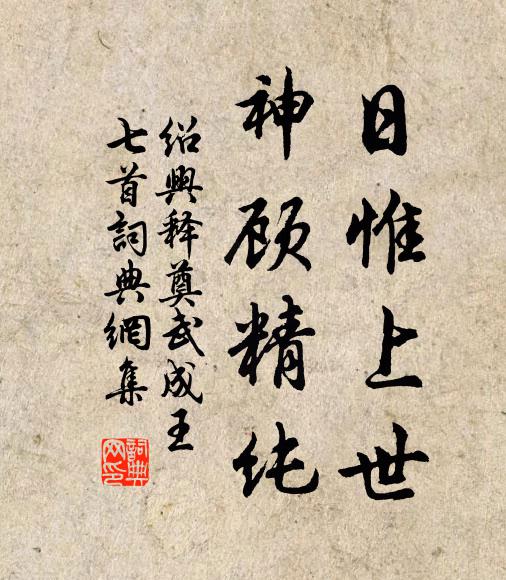 日惟上世
神顾精纯
绍興释奠武成王
七首詞典網集
詞典
网印